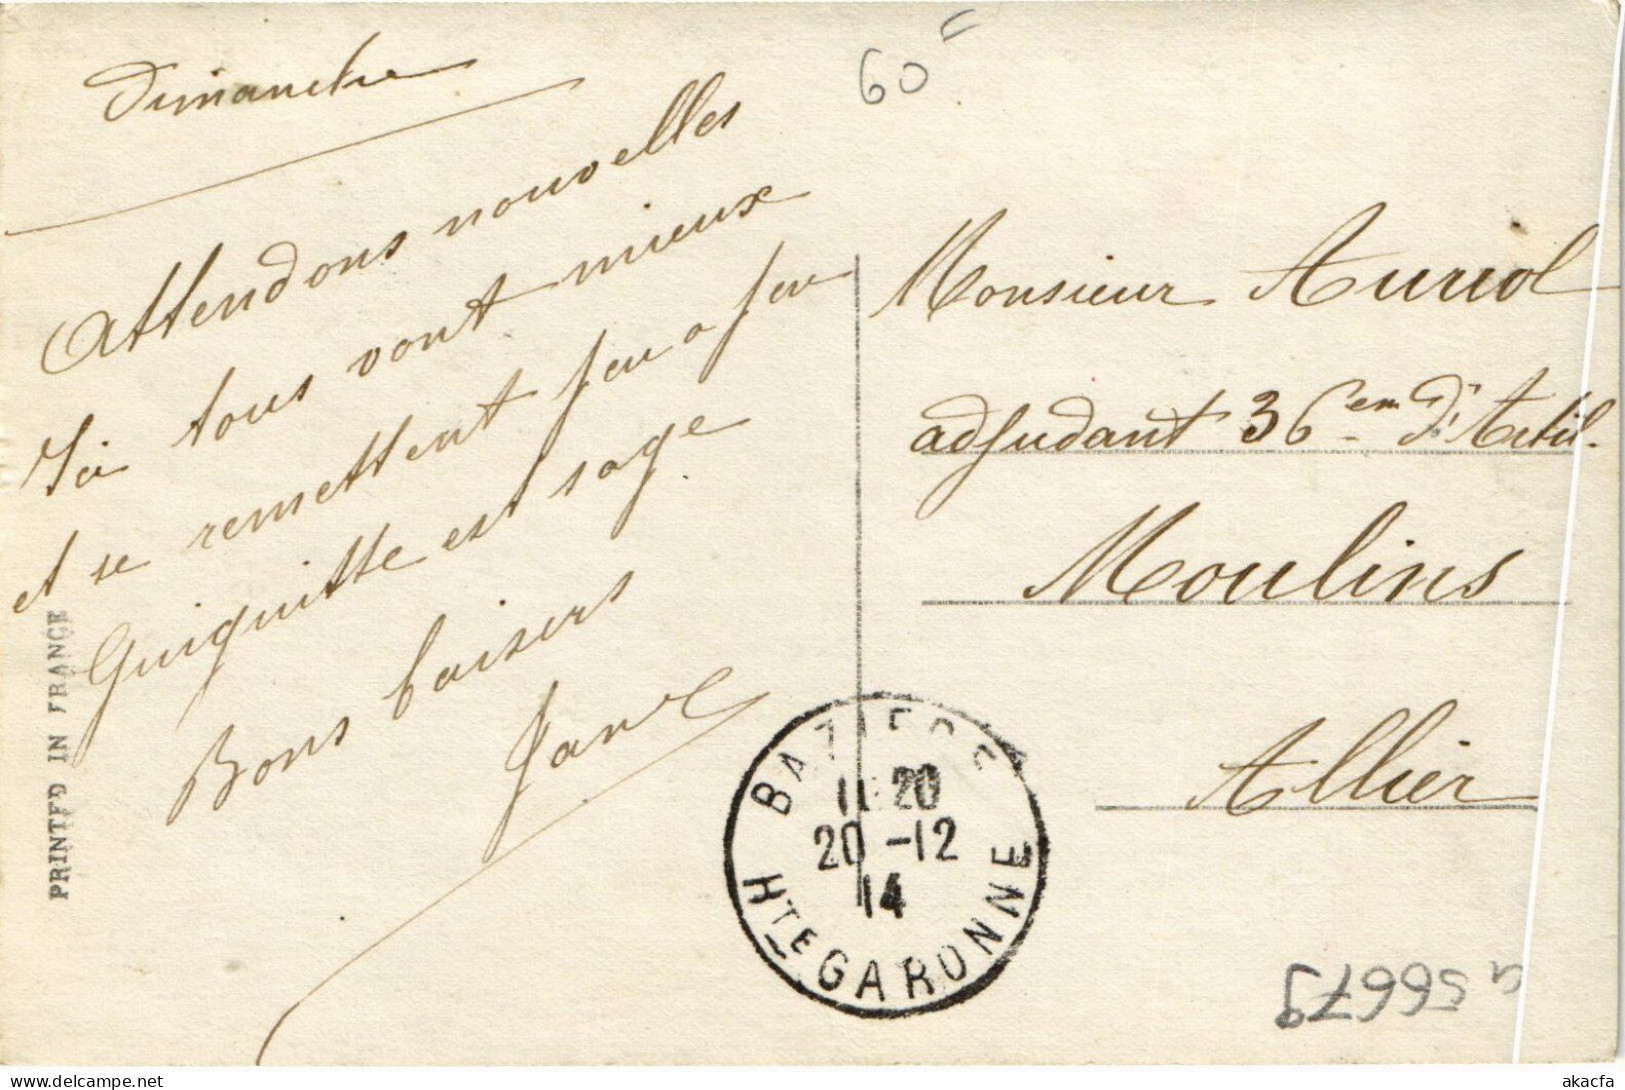 60
Dimanche
Attendons nouvelles
Ici tous vont mieux
et se remettent peu a peu
Guiguitte est sage
Bons baisers
PRINTED IN FRANCE
Monsieur Auriol
adjudant 36em d'Artil.
Moulins
Allier
BAZIEGE
20
20-12
14
HTE GARONNE
a 56679
akacfa